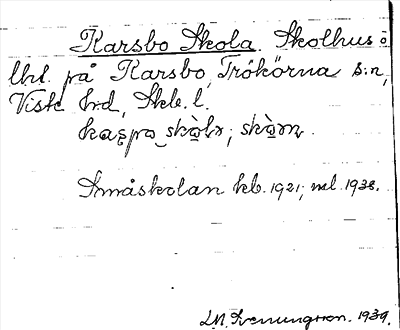 Karsbo Skola. Skolhus o
lht. på Karsbo, Trökörna s:n,
Viste hrd, Skb. l.
skò̤la; skò̤ra.
Småskolan kb. 1921; ml. 1938.
L.M. Svenungsson. 1939.